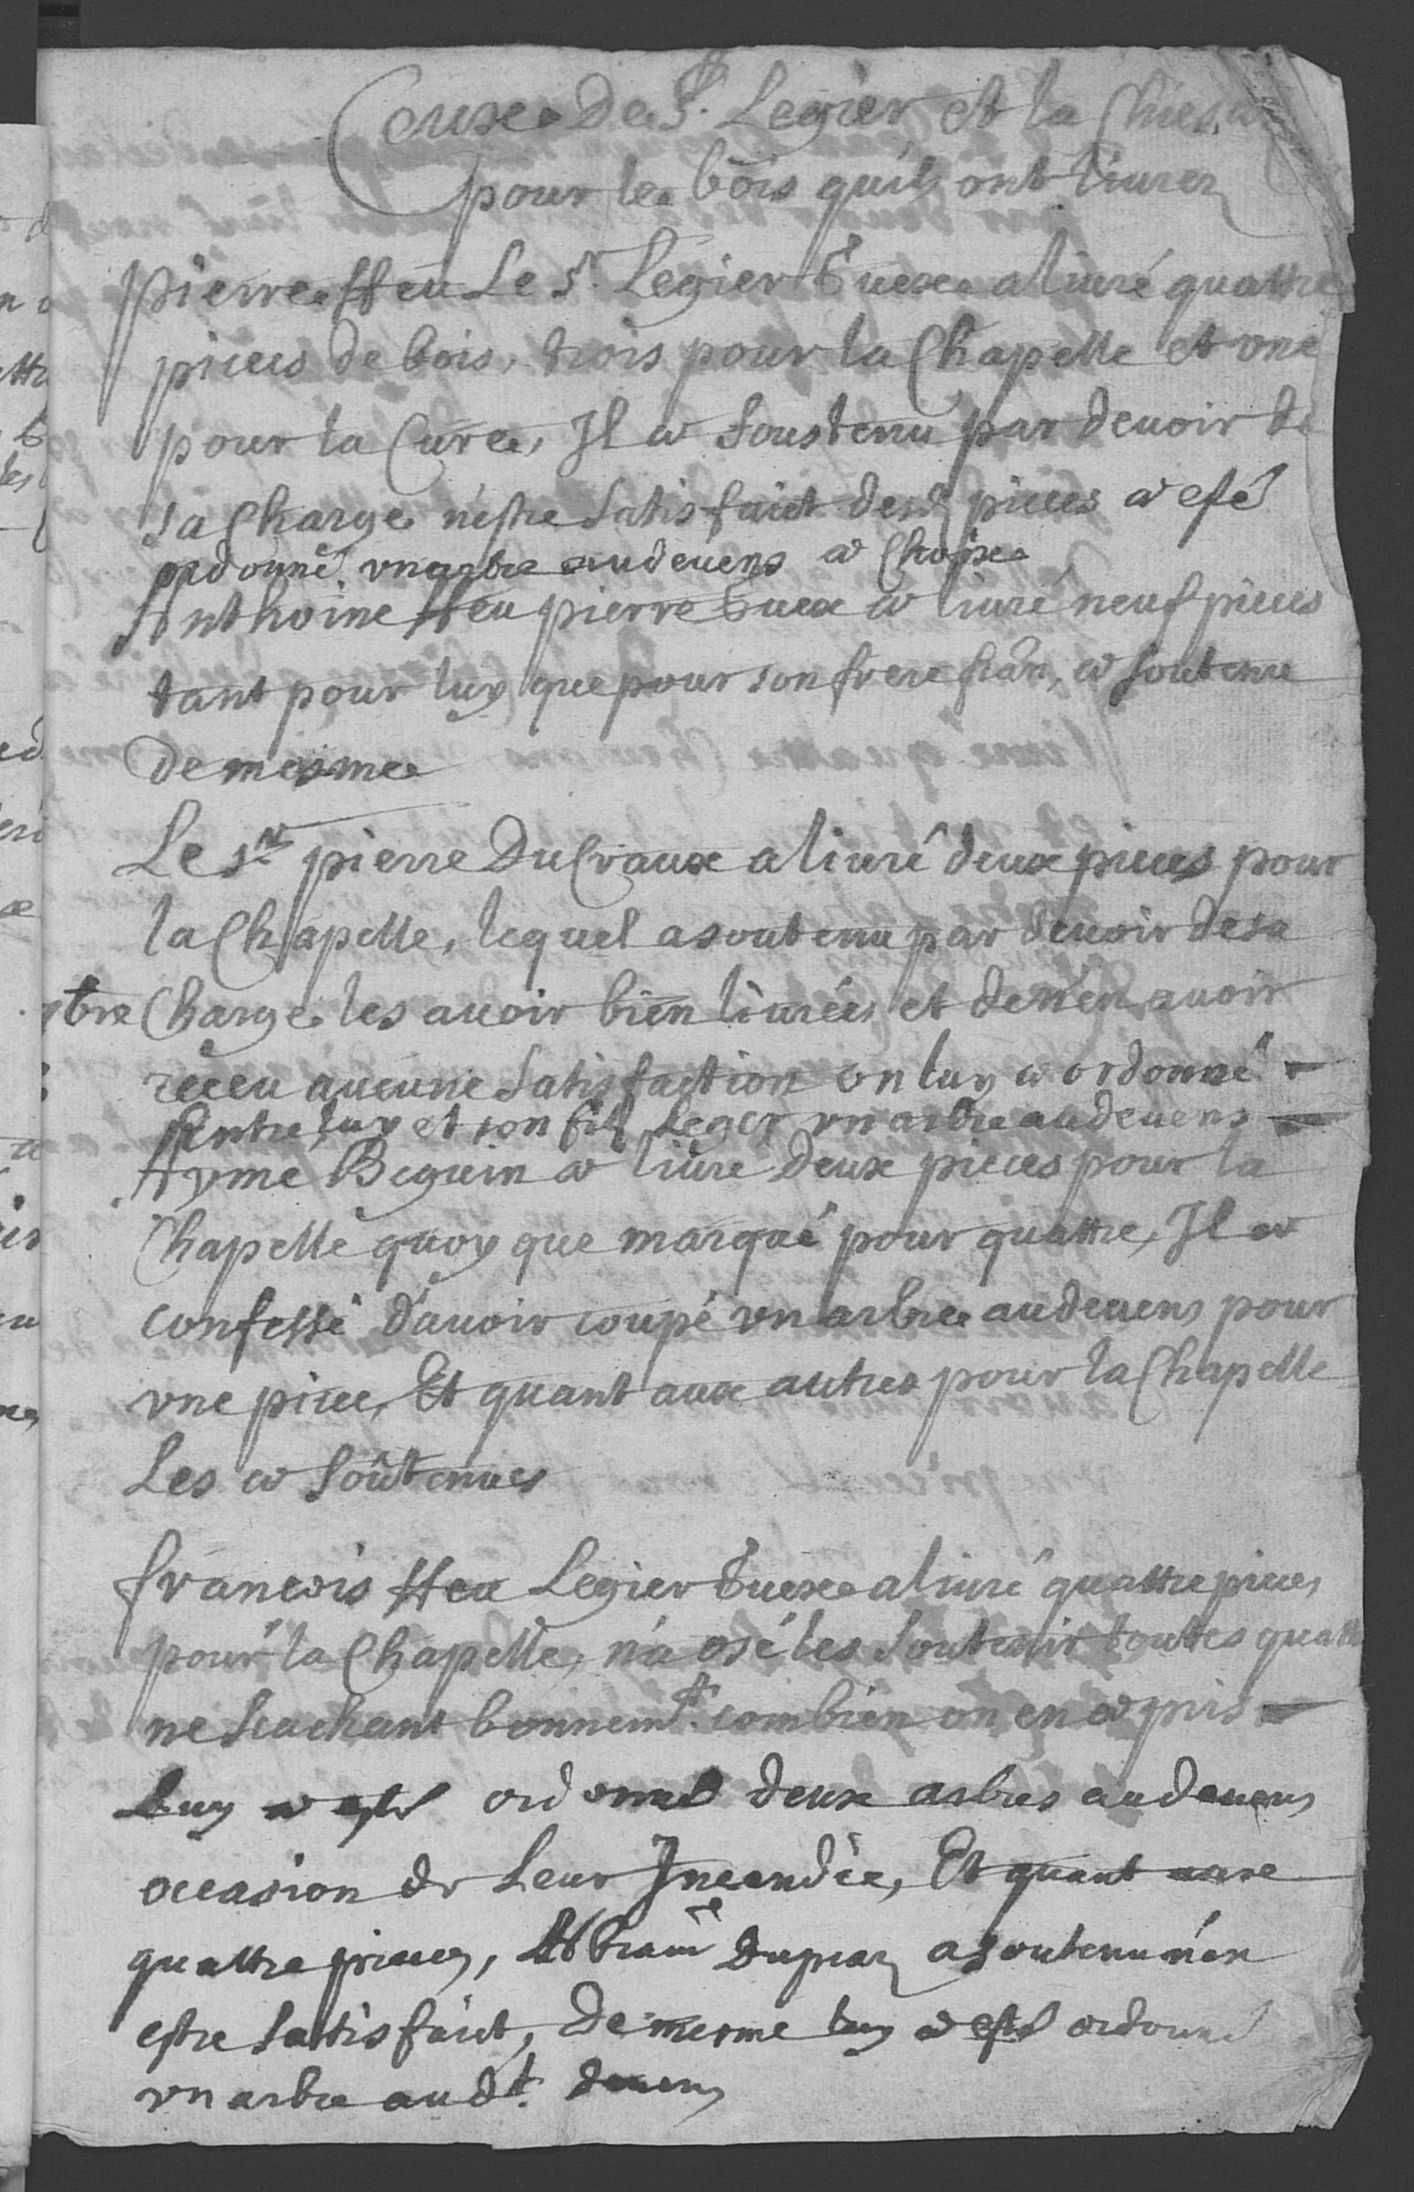 Ceuxe De St. Legier et la Chiesa
pour le bois quilz ont liurez
pierre ffeu Le Sr. Legier Guexe a liuré quattre
pieces de bois, trois pour la Chapelle et vne
pour la Cure, Il a soustenu par deuoir de
sa Charge n'estre satisfaict desd pieces a esté
ordonné vn arbre au deuens a Choixe
Anthoine ffeu pierre Guex a liuré neuf pieces
tant pour luy que pour son frere fran, a soutenu
de mesme
Le sr pierre DuCraux a liuré deux pieces pour
la Chapelle, lequel a soutenu par deuoir de sa
Charge les auoir bien liurées et de n'en auoir
receu aucune satisfaction on luy a ordonné
Entre luy et son filz Leger vn arbre au deuens
Ayme Beguin a liure deux pieces pour la
Chapelle quoy que marqué pour quattre, Il a
confessé d'auoir coupé vn arbre au deuens pour
vne piece, Et quant aux autres pour la Chapelle
Les a soûtenues
francois ffeu Legier Guexe a liuré quattre pieces
pour la Chapelle, n'a osé les soutenir toutes quatt
ne scachant bonnemt. combien on en a pris
Luy a esté ordonné deux arbres au deuens
occasion de Leur Incendie, Et quant aux
quattre pieces, Abram Dupraz a soutenu n'en
estre satisfaict, de mesme luy a esté ordonné
vn arbre audt. deuens